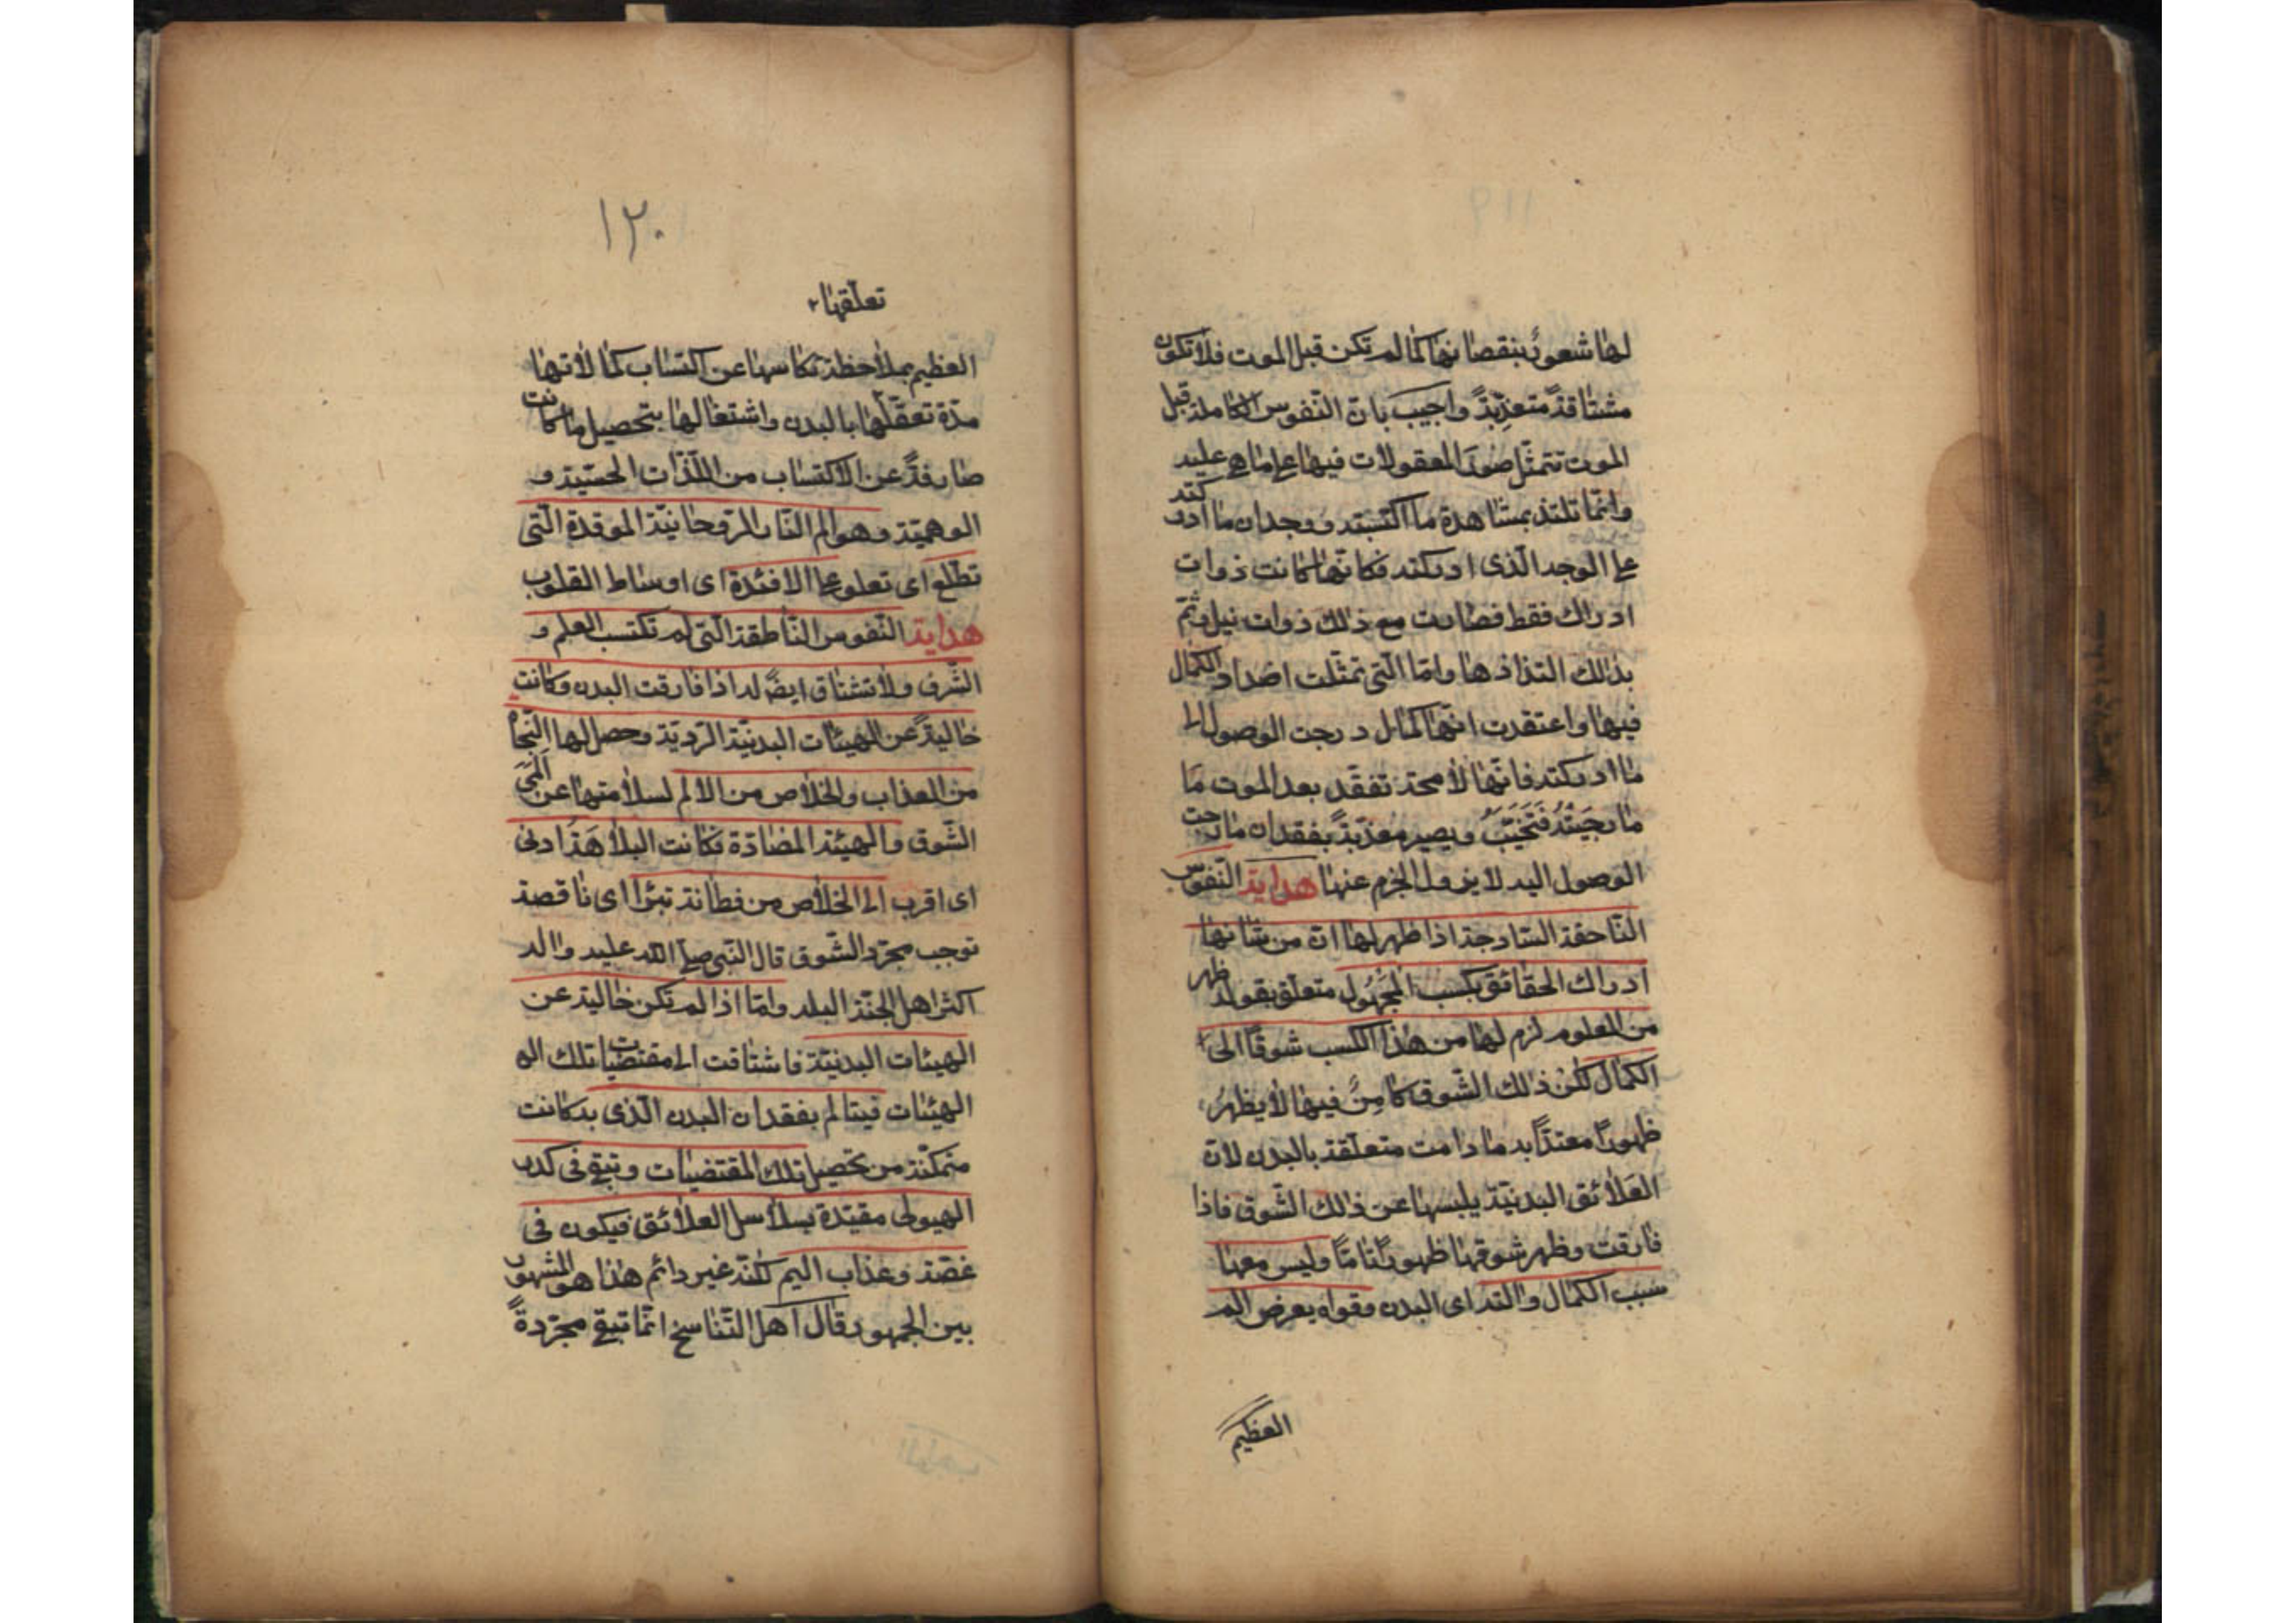 لها شعورٌ بنقصانها كما لم تكن قبل الموت فلا تكون
مشتاقةً متعذّبةً واجيب بانّ النّفوس الكاملة قبل
الموت تتمثّل صور المعقولات فيها على ما هى عليه
وانّما تلتذ بمشاهدة ما اكتسبته ووجدان ما ادركته
على الوجه الّذى ادركته فكانّها كانت ذوات
ادراك فقط فصارت مع ذلك ذوات نيل وتمّ
بذلك التذاذها وامّا الّتى تمثّلت اضداد الكمال
فيها واعتقدت انّها كمال درجت الوصول الى
ما ادركته فانّها لا محة تفقد بعد الموت ما
ما رجيته فتخيّب ويصير معذّبةً بفقدان ما رجت
الوصول اليه لا يزول الجزم عنها هداية النّفوس
النّاحقة السّادجة اذا ظهر لها انّ من شانها
ادراك الحقائق بكسب المجهول متعلّق بقوله ظهر
من المعلوم لزم لها من هذا الكسب شوقًا الى
الكمال لكن ذلك الشّوق كامنٌ فيها لا يظهر
ظهورًا معتدًّا به ما دامت متعلّقة بالبدن لانّ
العلائق البدنيّة يلبسها عن ذلك الشّوق فاذا
فارقت وظهر شوقها ظهورًا تامًّا وليس معها
سبب الكمال والته اى البدن وقواه يعرض الم
العظيم
١٢٠
تعلّقها
العظيم بملاحظة تكاسها عن اكتساب كمالاتها
مدّة تعقّلها بالبدن واشتغالها بتحصيل ما كانت
صارفةً عن الاكتساب من اللّذّات الحسّية و
الوهميّة وهو الم النّار الرّوحانيّة الموقدة الّتى
تطّلع اى تعلو على الافئدة اى اوساط القلوب
هداية النّفوس النّاطقة الّتى لم تكتسب العلم و
الشّرف ولا تشتاق ايضًا له اذا فارقت البدن وكانت
خاليةً عن الهيئات البدنيّة الرّديّة وحصل لها النّجاة
من العذاب والخلاص من الالم لسلامتها عن المى
الشّوق والهيئة المضادّة فكانت البلاهة ادنى
اى اقرب الى الخلاص من فطانة تبرا اى ناقصة
توجب مجرّد الشّوق قال النّبى صلى الله عليه واله
اكثر اهل الجنّة البله وامّا اذا لم تكن خالية عن
الهيئات البدنيّة فاشتاقت الى مقتضيات تلك اله
الهيئات فيتالم بفقدان البدن الّذى به كانت
متمكّنة من تحصيل تلك المقتضيات وتبقى فى كدر
الهيولى مقيّدة بسلاسل العلائق فيكون فى
غصّة وعذاب اليم لكنّه غير دائم هذا هو المشهور
بين الجمهور قال اهل التّناسخ انّما تبقى مجرّدةً